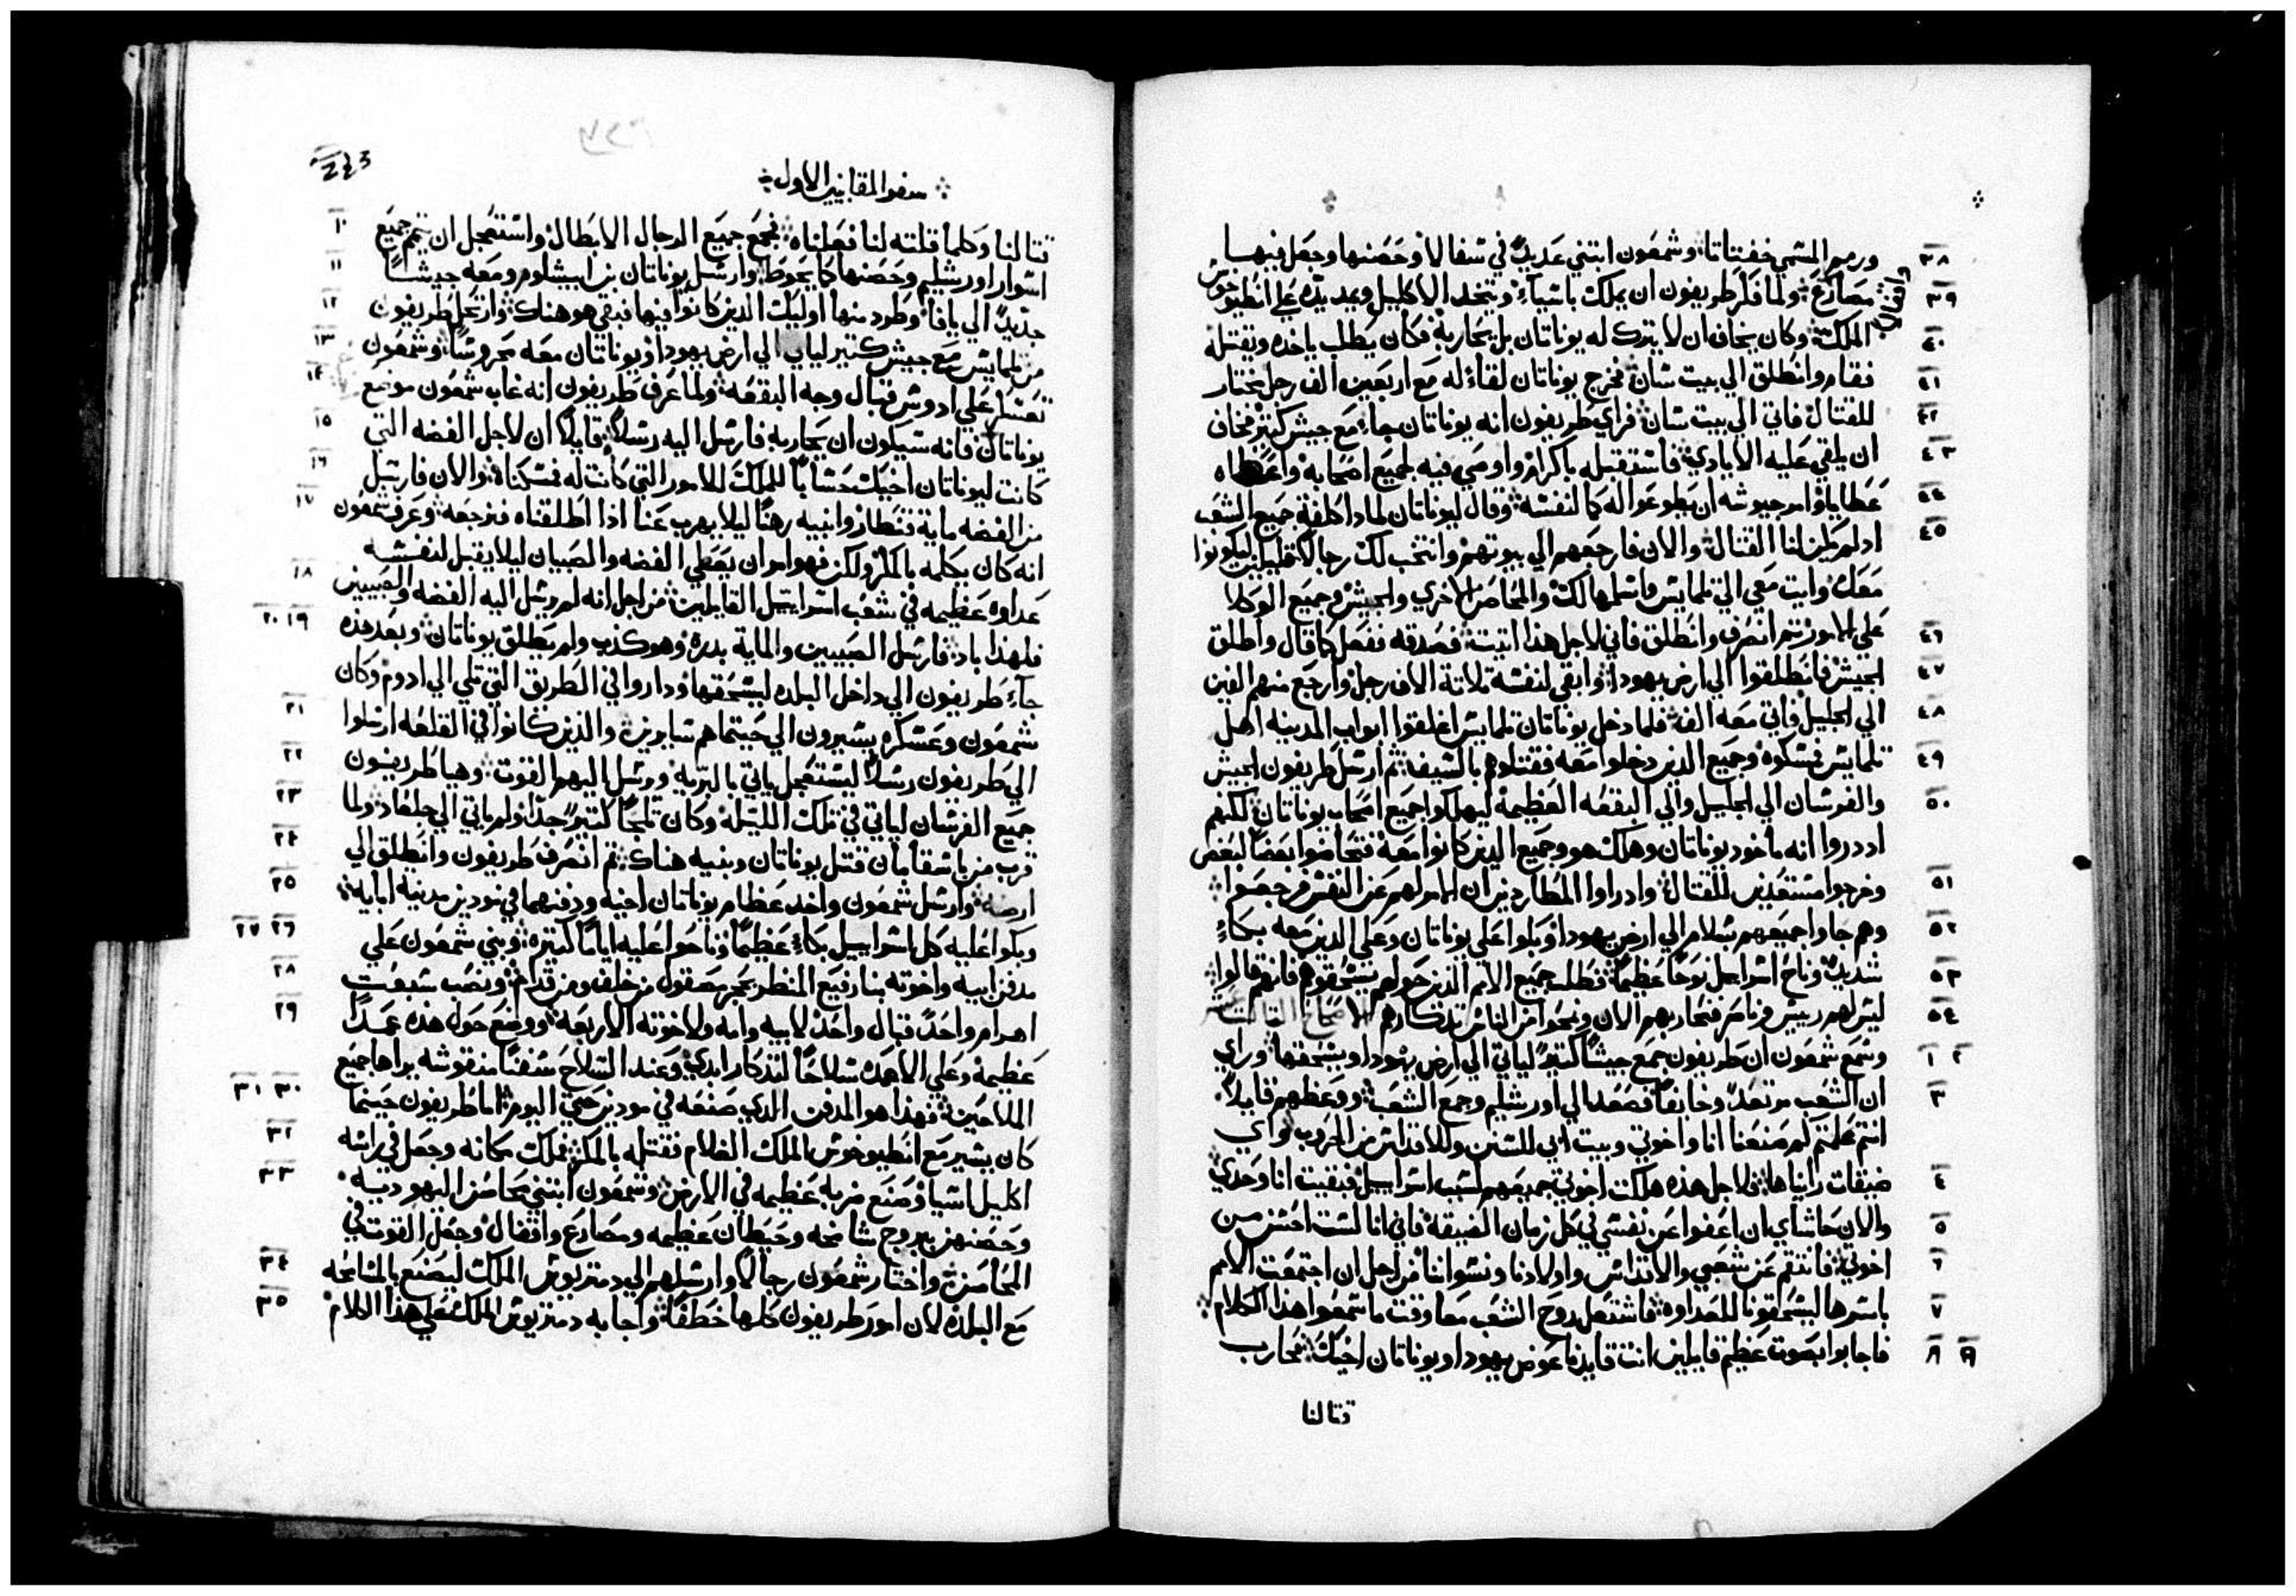 ورمم المسمي خفتاتا وشمعون ابتني عديدٌ في سفالا وحصنها وجعل فيها
٣٨
مصارع ولما فكر طريفون ان يملك باسيا ويتخد الاكليل ويمد يده علي انطيوخوس
٣٩
واقفال
الملك وكان يخاف ان لا يتركه له يوناتان بل يحاربه فكان يطلب ياخده ويقتله
٤٠
فقام وانطلق الي بيت سان فخرج يوناتان لقاءً له مع اربعين الف رجل مختار
٤١
للقتال فاتي الي بيت سان فراي طريفون انه يوناتان جاء مع جيش كثير فخاف
٤٢
ان يلقي عليه الايادي فاستقبله باكرام واوصي فيه لجميع اصحابه واعطاه
٤٣
عطايا وامر جيوشه ان يطوعوا له كما لنفسه وقال ليوناتان لمادا كلفة جميع الشعب
٤٤
اد لم يكن لنا القتال والان فارجعهم الي بيوتهم وانتخب لك رجالاً قليلين ليكونوا
٤٥
معك وايت معي الي تلمايس فاسلمها لك والمحاصن الاخري والجيش وجميع الوكلا
علي الامور ثم انصرف وانطلق فاني لاجل هذا اتيت فصدقه ففعل كما قال واطلق
٤٦
الجيش فانطلقوا الي ارض يهودا وابقي لنفسه تلاتة الاف رجل وارجع منهم الفين
٤٧
الي الجليل فاتي معه الف فلما دخل يوناتان تلمايس اغلقوا ابواب المدينه اهل
٤٨
تلمايس فمسكوه وجميع الدين دخلوا معه فقتلوهم بالسيف ثم ارسل طريفون الجيش
٤٩
والفرسان الي الجليل والي البقعه العظيمة ليهلكوا جميع اصحاب يوناتان لكنهم
٥٠
اد دروا انه ماخود يوناتان وهلك هو وجميع الدين كانوا معه فتحاضوا بعضاً لبعض
وخرجوا مستعدين للقتال واد راوا المطاردين ان الامر لهم عن النفس فرجعوا
٥١
وهم جاوا جميعهم بسلام الي ارض يهودا وبكوا علي يوناتان وعلي الدين معه بكاءً
٥٢
شديدٌ وناح اسراييل نوحاً عظيماً فطلب جميع الامم الدين حولهم يسحقوهم فانهم قالوا
٥٣
ليس لهم رييس وناصر فنحاربهم الان ونمحوا من الناس تدكارهم الاصحاح التالت عشر
٥٤
وسمع شمعون ان طريفون جمع جيشاً كتيرٌ لياتي الي ارض يهودا ويسحقها وراي
١ ٢
ان الشعب مرتعدٌ وخايفاً فصعد الي اورشليم وجمع الشعب ووعظهم قايلاً
٣
انتم علمتم كم صنعنا انا واخوتي وبيت ابي للسنن وللاقداس من الحروب واي
ضيقات رايناها فلاجل هذه هلكت اخوتي جميعهم لسبب اسراييل فبقيت انا وحدي
٤
والان حاشاي ان اعفوا عن نفسي في كل زمان الضيقة فاني انا لست احسن من
٥
اخوتي فانتقم عن شعبي والاقداس واولادنا ونسواننا من اجل ان اجتمعت الامم
٦
باسرها ليسحقونا للعداوه فاشتعل روح الشعب معا وقت ما سمعوا هذا الكلام
٧
فاجابوا بصوت عظيم قايلين انت قايدنا عوض يهودا ويوناتان اخيك فحارب
٨ ٩
قتالنا
سفر المقابيين الاول
243
قتالنا وكلما قلته لنا فعلناه فجمع جميع الرجال الابطال واستعجل ان يتمم جميع
١٠
اسوار اورشليم وحصنها كما يحوط وارسل يوناتان بن ابيشلوم ومعه جيشاً
١١
جديدٌ الي يافا وطرد منها اوليك الدين كانوا فيها فبقي هو هناك وارتحل طريفون
١٢
من تلمايس مع جيش كتير لياتي الي ارض يهودا ويوناتان معه محروساً وشمعون
١٣
تعسكر علي ادوس قبال وجه البقعه ولما عرف طريفون انه غاب شمعون موضع
١٤
يوناتان فانه سيكون ان يحاربه فارسل اليه رسلاً قايلاً ان لاجل الفضه التي
١٥
كانت ليوناتان اخيك حساباً للملك للامور التي كانت له فمسكناه والان فارسل
١٦
من الفضه ماية قنطار وابنيه رهناً ليلا يهرب عنا اذا اطلقناه فنرجعه وعرف شمعون
١٧
انه كان يكلمه بالمكر ولكن فهو امر ان يعطي الفضه والصبيان ليلا يقبل لنفسه
عداوه عظيمه في شعب اسراييل القايلين من اجل انه لم يرسل اليه الفضه والصبيين
١٨
فلهذا باد فارسل الصبيين والماية بدره وهو كذب ولم يطلق يوناتان وبعد هذه
١٩ ٢٠
جاء طريفون الي داخل البلده ليسحقها وداروا في الطريق التي تلي الي ادوم وكان
شمعون وعسكره يسيرون الي حيتما هم سايرين والذين كانوا في القلعه ارسلوا
٢١
الي طريفون رسلاً ليستعجل ياتي بالبريه ويرسل اليهم القوت وهيا طريفون
٢٢
جميع الفرسان لياتي في تلك الليله وكان تلجاً كتيرٌ جداً ولم ياتي الي جلعاد ولما
٢٣
قرب من باسقامان قتل يوناتان وبنيه هناك ثم انصرف طريفون وانطلق الي
٢٤
ارضه وارسل شمعون واخد عظام يوناتان اخيه ودفنهما في نودين مدينة ابايه
٢٥
وبكوا عليه كل اسراييل بكاءً عظيماً وناحوا عليه اياماً كتيره وبني شمعون علي
٢٦ ٢٧
مدفن ابيه واخوته بنا رفيع المنظر بحجر مصقول من خلف ومن قدام ونصب سبعت
٢٨
اهرام واحدٌ قبال واحدٌ لابيه وامه ولاخوته الاربعة ووضع حول هذه عمداً
٢٩
عظيمة وعلي الاعمدة سلاحاً لتدكار ابدي وعند السلاح سفناً منقوشه يراها جميع
الملاحين فهذا هو المدفن الذي صنعه في مودين حتي اليوم اما طريفون حينما
٣٠ ٣١
كان يسير مع انطيوخوس الملك الغلام فقتله بالمكر فملك مكانه وجعل في راسه
٣٢
اكليل اسيا وصنع ضربه عظيمه في الارض وشمعون ابتني محاصن اليهوديه
٣٣
وحصنهن ببروج شامخه وحيطان عظيمه ومصارع واقفال وجعل القوت في
المحاصن واختار شمعون رجالاً وارسلهم الي دمتريوس الملك ليصنع بالمسامحه
٣٤
مع البلده لان امور طريفون كلها خطفاً واجابه دمتريوس الملك علي هذا الكلام
٣٥